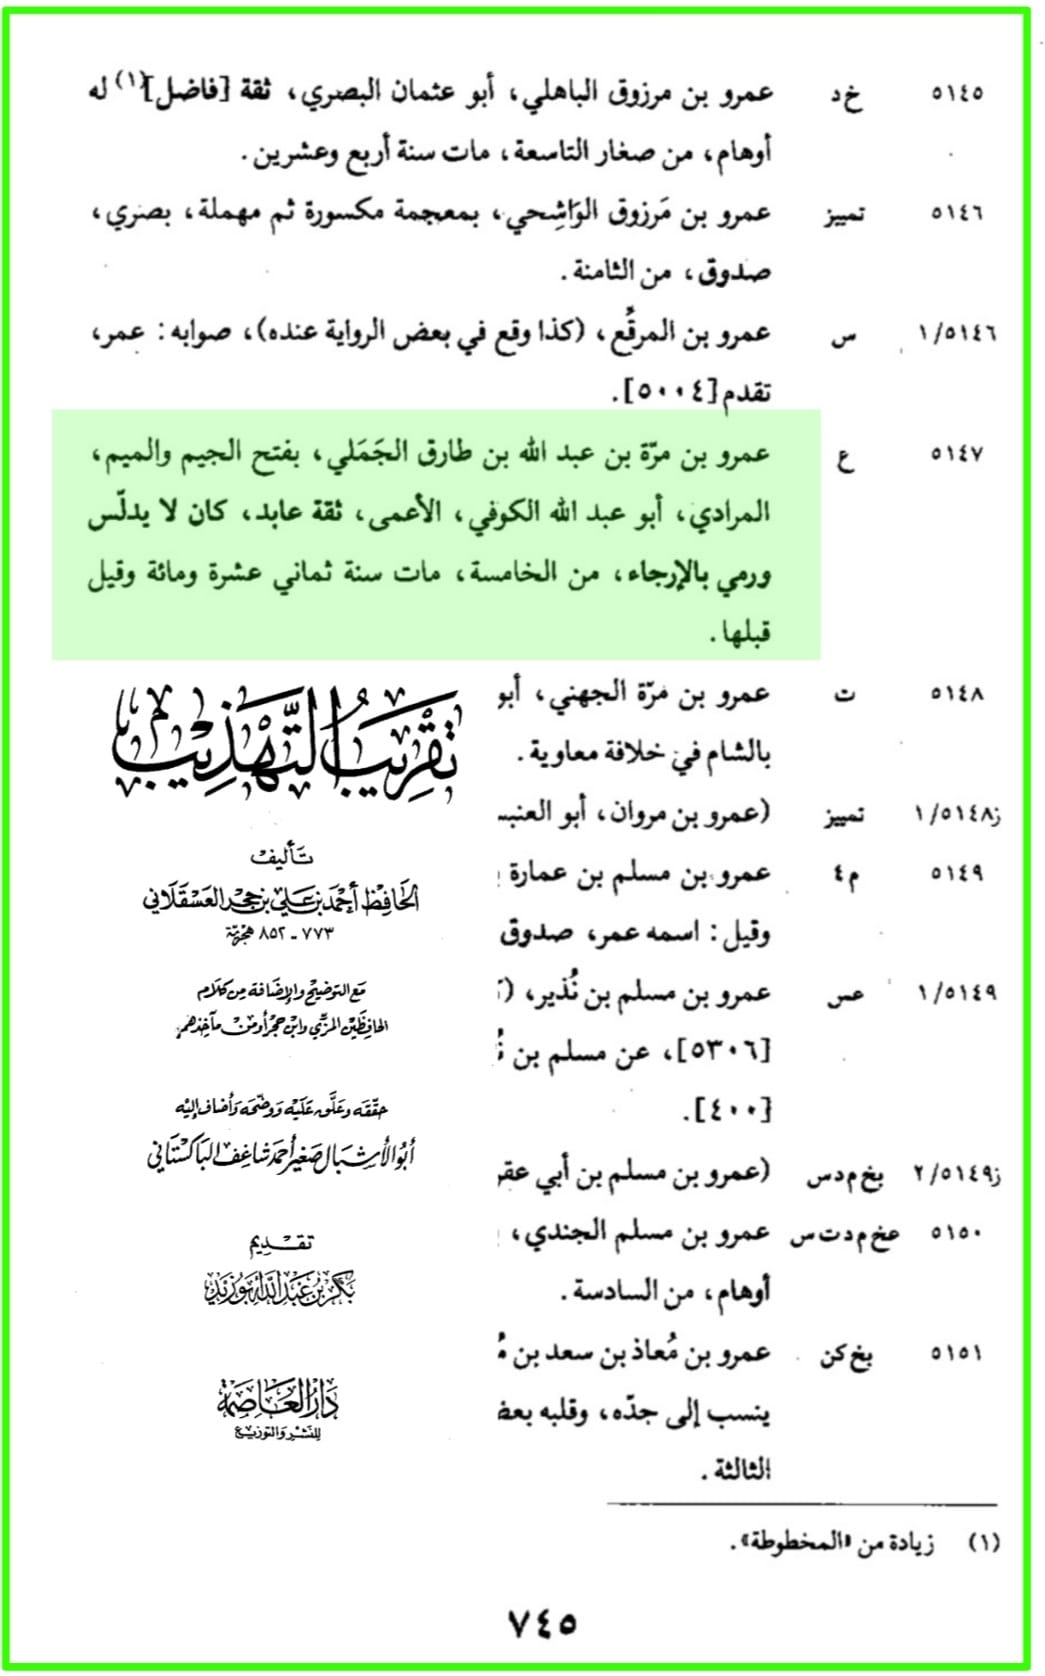 ٥١٤٥ خ د عمرو بن مرزوق الباهلي، أبو عثمان البصري، ثقة [فاضل](١) له
أوهام، من صغار التاسعة، مات سنة أربع وعشرين.
٥١٤٦ تمييز عمرو بن مَرزوق الوَاشِحي، بمعجمة مكسورة ثم مهملة، بصري،
صدوق، من الثامنة.
١/٥١٤٦ س عمرو بن المرقَّع، (كذا وقع في بعض الرواية عنده)، صوابه: عمر،
تقدم [٥٠٠٤].
٥١٤٧ ع عمرو بن مرّة بن عبد الله بن طارق الجَمَلي، بفتح الجيم والميم،
المرادي، أبو عبد الله الكوفي، الأعمى، ثقة عابد، كان لا يدلّس
ورمي بالإرجاء، من الخامسة، مات سنة ثماني عشرة ومائة وقيل
قبلها.
٥١٤٨ ت عمرو بن مرّة الجهني، أبو
بالشام في خلافة معاوية.
ز١/٥١٤٨ تمييز (عمرو بن مروان، أبو العنبس
٥١٤٩ م ٤ عمرو بن مسلم بن عمارة
وقيل: اسمه عمر، صدوق
١/٥١٤٩ عس عمرو بن مسلم بن نُذير، (
[٥٣٠٦]، عن مسلم بن
[٤٠٠].
ز٢/٥١٤٩ بخ م د س (عمرو بن مسلم بن أبي عقر
٥١٥٠ عخ م د ت س عمرو بن مسلم الجندي،
أوهام، من السادسة.
٥١٥١ بخ كن عمرو بن مُعاذ بن سعد بن
ينسب إلى جدّه، وقلبه بعض
الثالثة.
تقريب التهذيب
تأليف
الحافظ أحمد بن علي بن حجر العسقلاني
٧٧٣ - ٨٥٢ هجرية
مع التوضيح والإضافة من كلام
الحافظين المزي وابن حجر أو من مآخذهم
حققه وعلق عليه ووضحه وأضاف إليه
أبو الأشبال صغير أحمد شاغف الباكستاني
تقديم
بكر بن عبد الله أبو زيد
دار العاصمة
للنشر والتوزيع
(١) زيادة من «المخطوطة».
٧٤٥